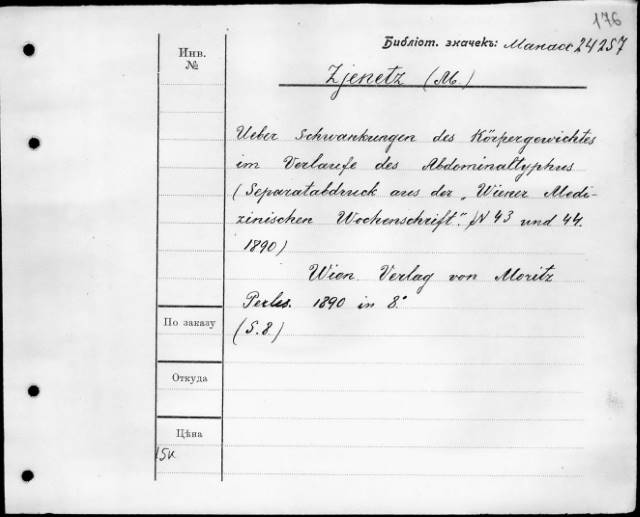 176
Инв.
№
Библіот. значекъ: Манасс 24257
Zjenetz (M.)
Ueber Schwankungen des Körpergewichtes
im Verlaufe des Abdominaltyphus
(Separatabdruck aus der „Wiener Medi-
zinischen Wochenschrift". N 43 und 44.
1890)
Wien. Verlag von Moritz
Perles. 1890 in 8.°
(S. 8.)
По заказу
Откуда
Цѣна
15к